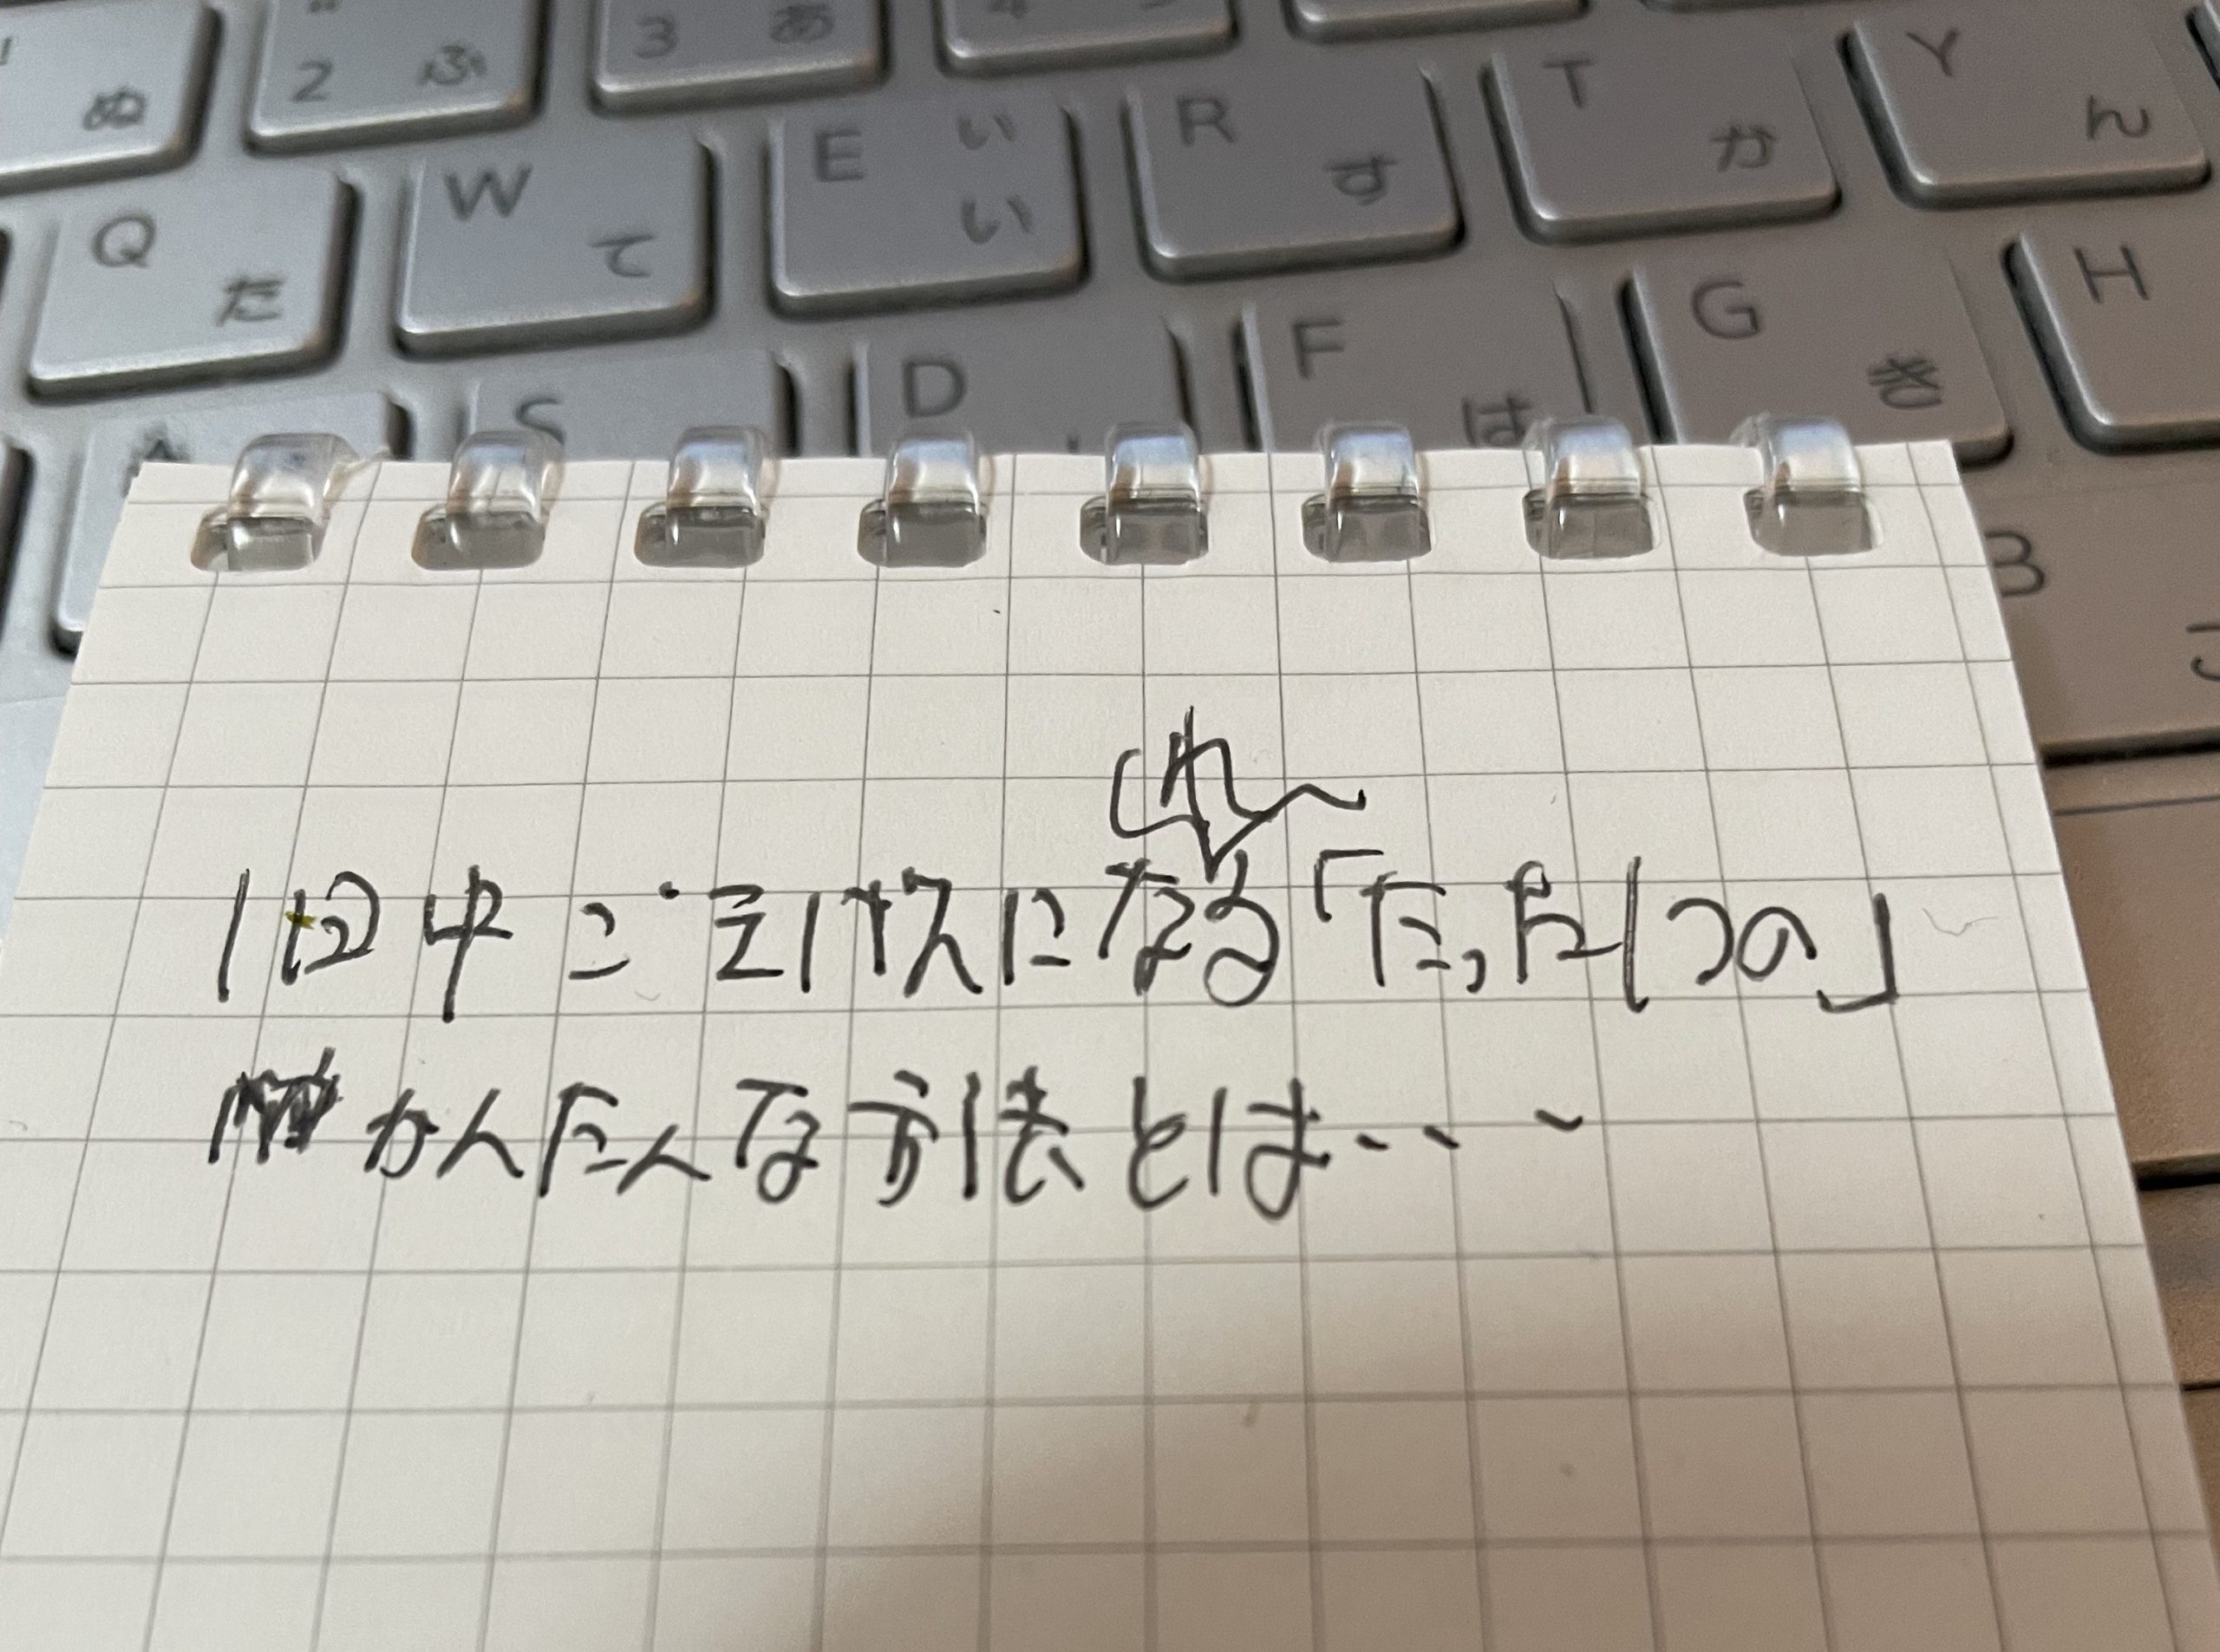 ぬ 2 ふ 3 あ
Q た W て E い ぃ R す T か Y ん
S D F は G き H
B こ
1日中ごきげんになれる「たった1つの」
かんたんな方法とは・・・